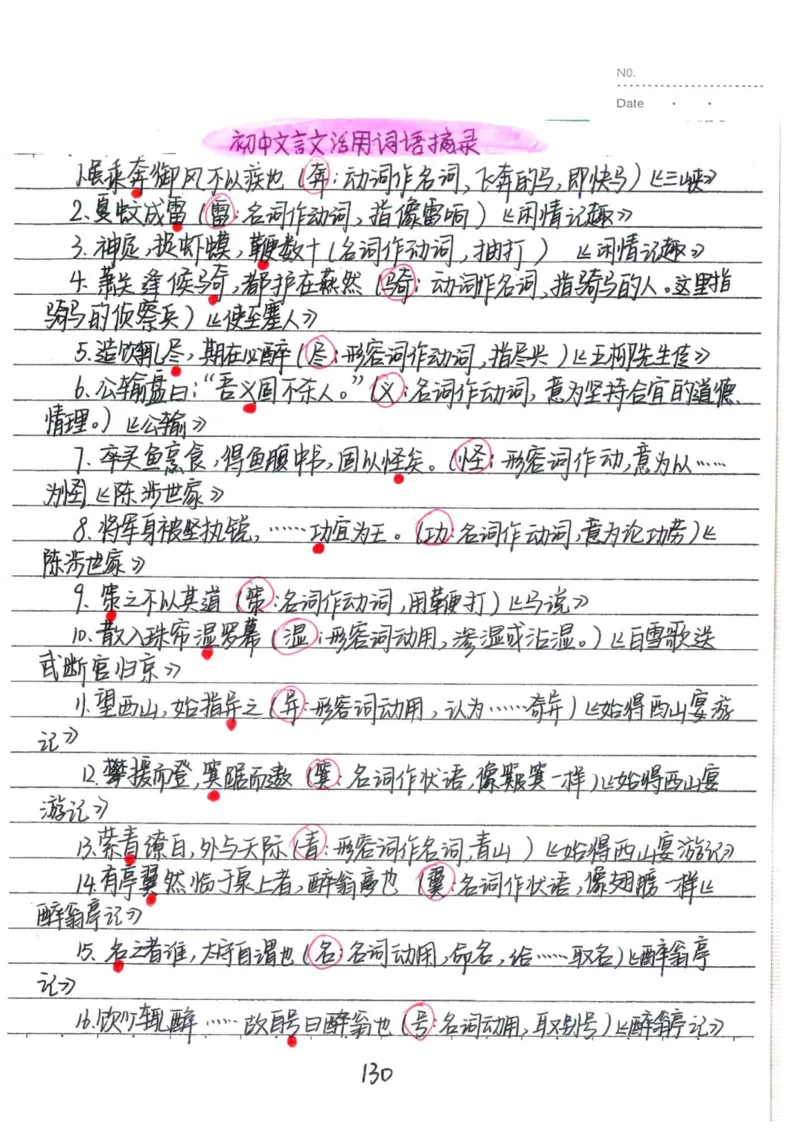 NO.
Date
初中文言文活用词语摘录
1.虽乘奔御风不以疾也(奔:动词作名词,飞奔的马,即快马)《三峡》
2.夏蚊成雷(雷:名词作动词,指像雷响)《闲情记趣》
3.神定,捉虾蟆,鞭数十(名词作动词,抽打)《闲情记趣》
4.萧关逢候骑,都护在燕然(骑:动词作名词,指骑马的人。这里指
骑马的侦察兵)《使至塞上》
5.造饮辄尽,期在必醉(尽:形容词作动词,指尽兴)《五柳先生传》
6.公输盘曰:“吾义固不杀人。”(义:名词作动词,意为坚持合宜的道德
情理。)《公输》
7.卒买鱼烹食,得鱼腹中书,固以怪矣。(怪:形容词作动,意为以……
为怪《陈涉世家》
8.将军身被坚执锐,……功宜为王。(功:名词作动词,意为论功劳)《
陈涉世家》
9.策之不以其道(策:名词作动词,用鞭打)《马说》
10.散入珠帘湿罗幕(湿:形容词动用,渗湿或沾湿。)《白雪歌送
武断官归京》
11.望西山,始指异之(异:形容词动用,认为……奇异)《始得西山宴游
记》
12.攀援而登,箕踞而遨(箕:名词作状语,像簸箕一样)《始得西山宴
游记》
13.萦青缭白,外与天际(青:形容词作名词,青山)《始得西山宴游记》
14.有亭翼然临于泉上者,醉翁亭也(翼:名词作状语,像翅膀一样《
醉翁亭记》
15.名之者谁,太守自谓也(名:名词动用,命名,给……取名)《醉翁亭
记》
16.饮少辄醉……故自号曰醉翁也(号:名词动用,取别号)《醉翁亭记》
130